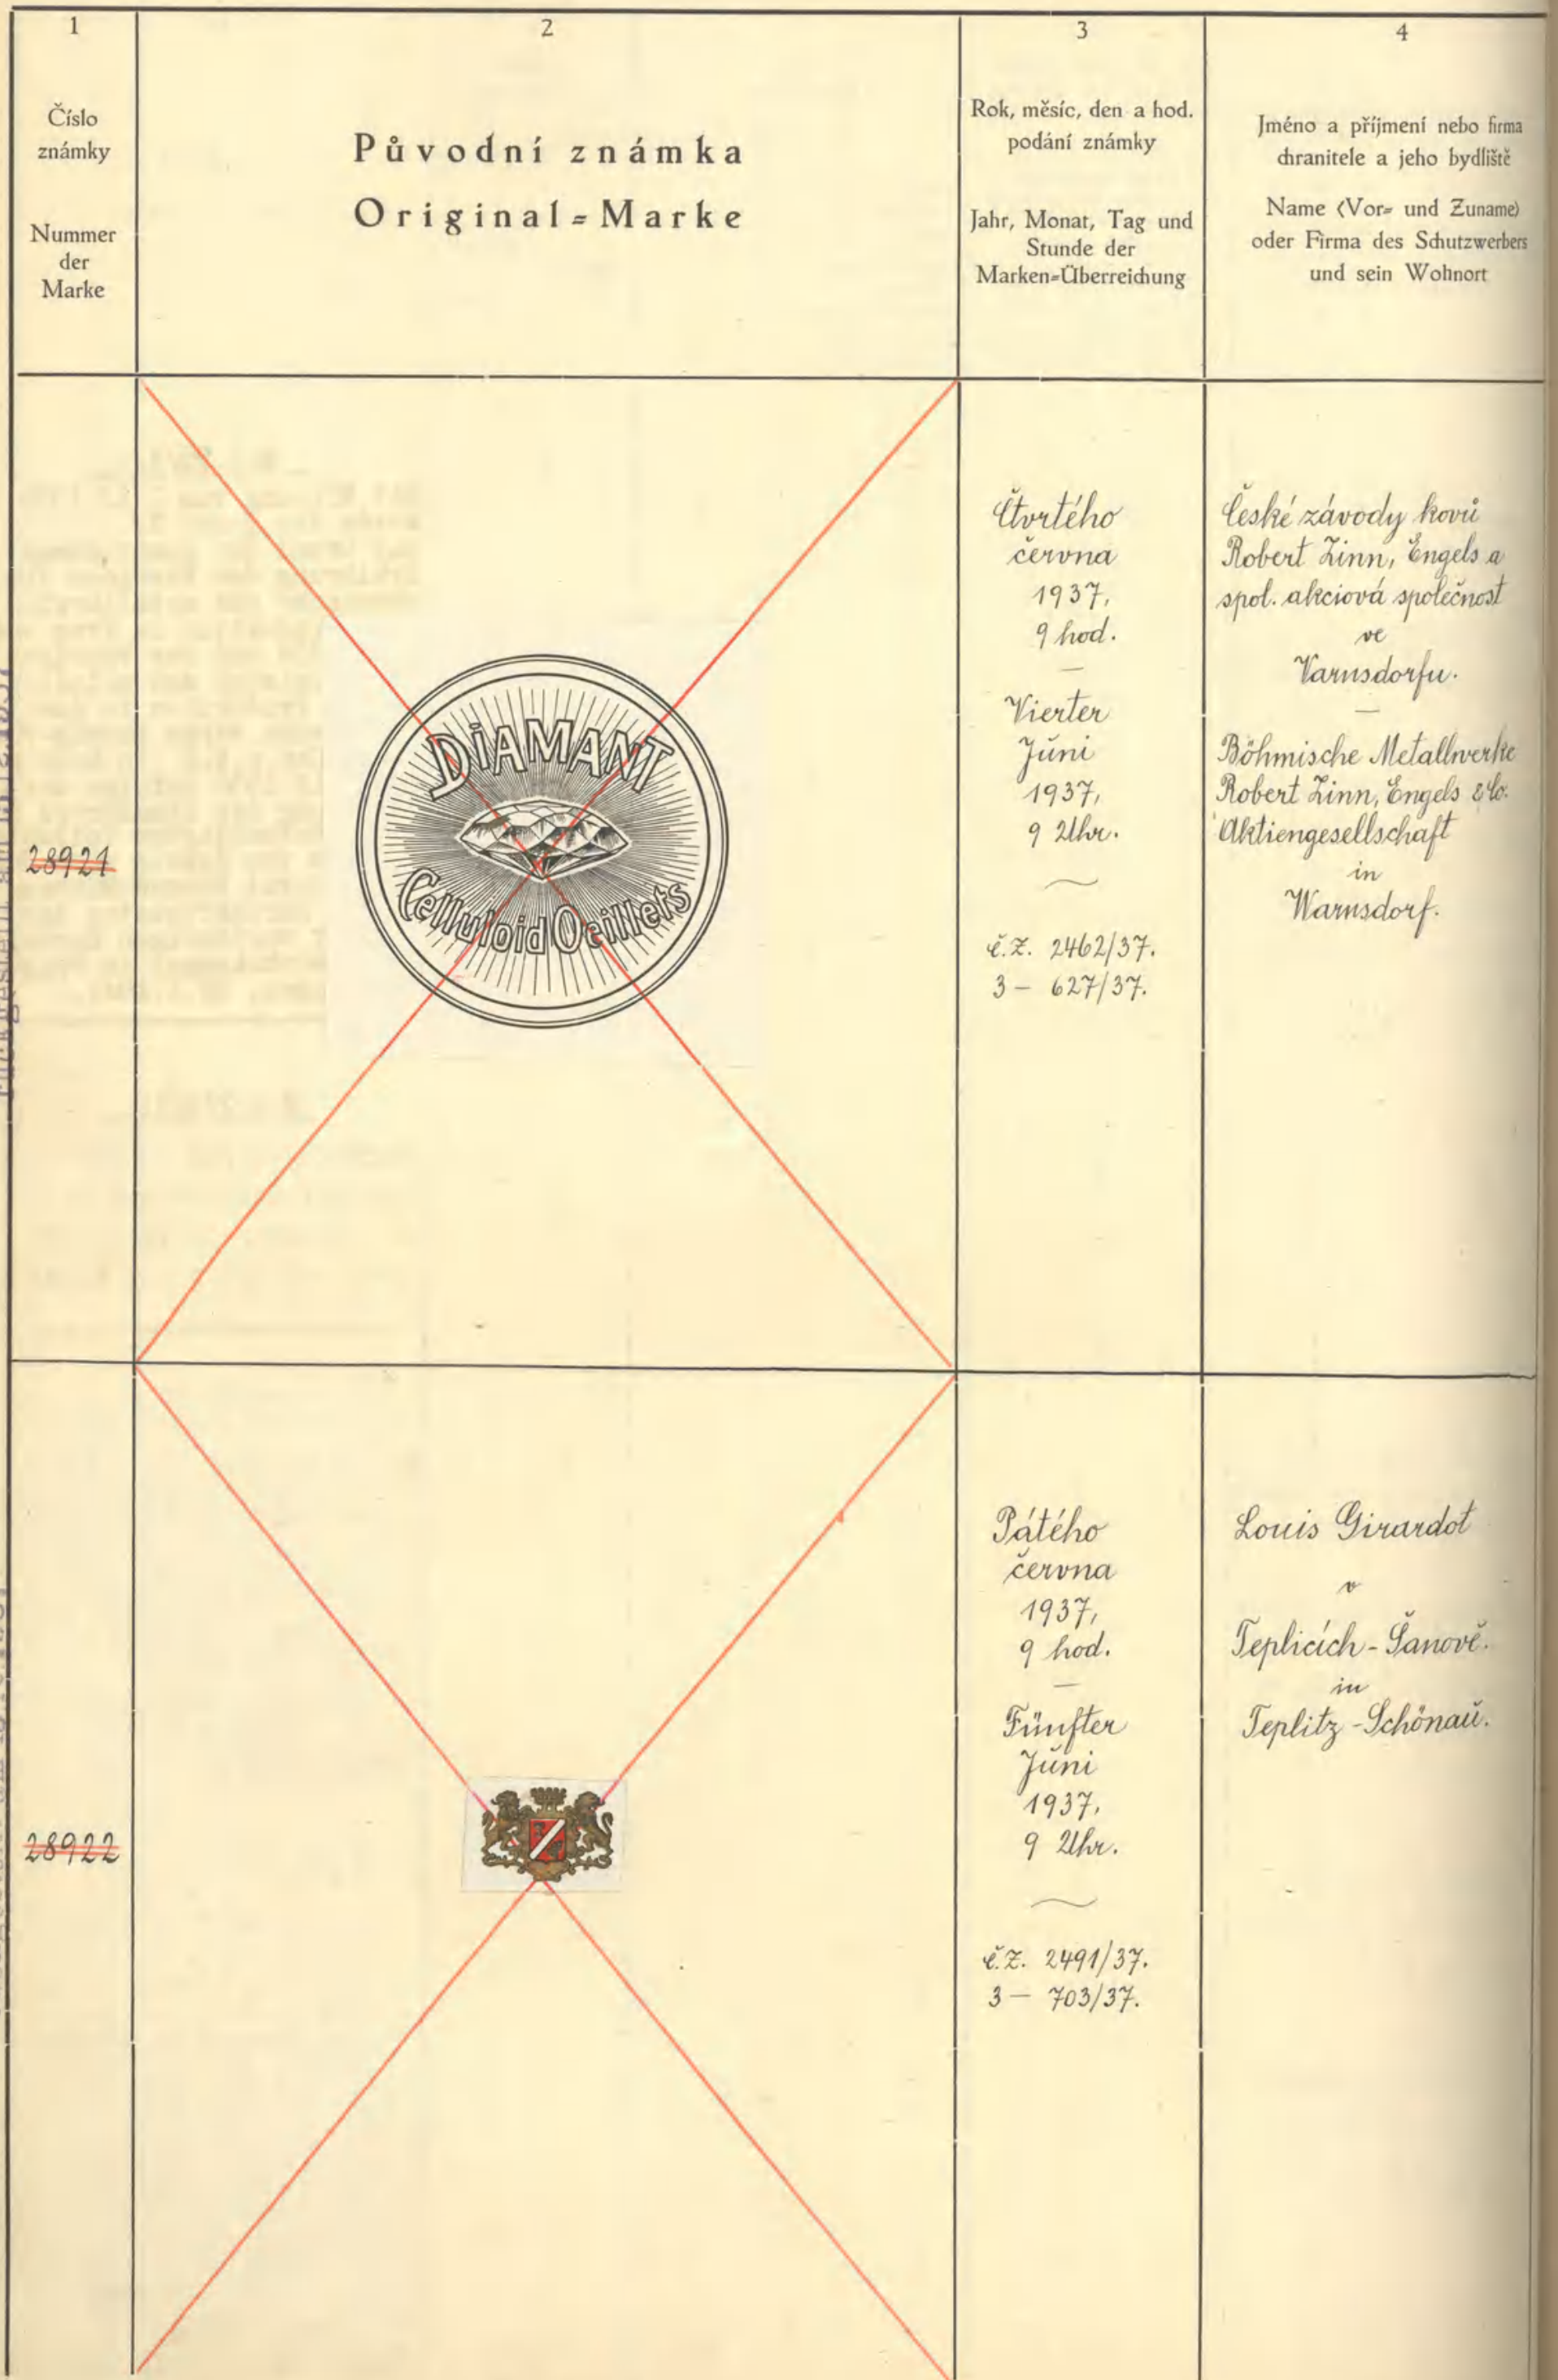 1
Číslo
známky
Nummer
der
Marke
2
Původní známka
Original=Marke
3
Rok, měsíc, den a hod.
podání známky
Jahr, Monat, Tag und
Stunde der
Marken=Überreichung
4
Jméno a příjmení nebo firma
chranitele a jeho bydliště
Name (Vor= und Zuname)
oder Firma des Schutzwerbers
und sein Wohnort
28921
DiAMANT
Celluloid Oeillets
Čtvrtého
června
1937,
9 hod.
—
Vierter
Juni
1937,
9 Uhr.
č.ž. 2462/37.
3 — 627/37.
České závody kovů
Robert Zinn, Engels a
spol. akciová společnost
ve
Varnsdorfu.
—
Böhmische Metallwerke
Robert Zinn, Engels & Co.
Aktiengesellschaft
in
Warnsdorf.
28922
Pátého
června
1937,
9 hod.
—
Fünfter
Juni
1937,
9 Uhr.
č.ž. 2491/37.
3 — 703/37.
Louis Girardot
v
Teplicích-Šanově.
in
Teplitz-Schönau.